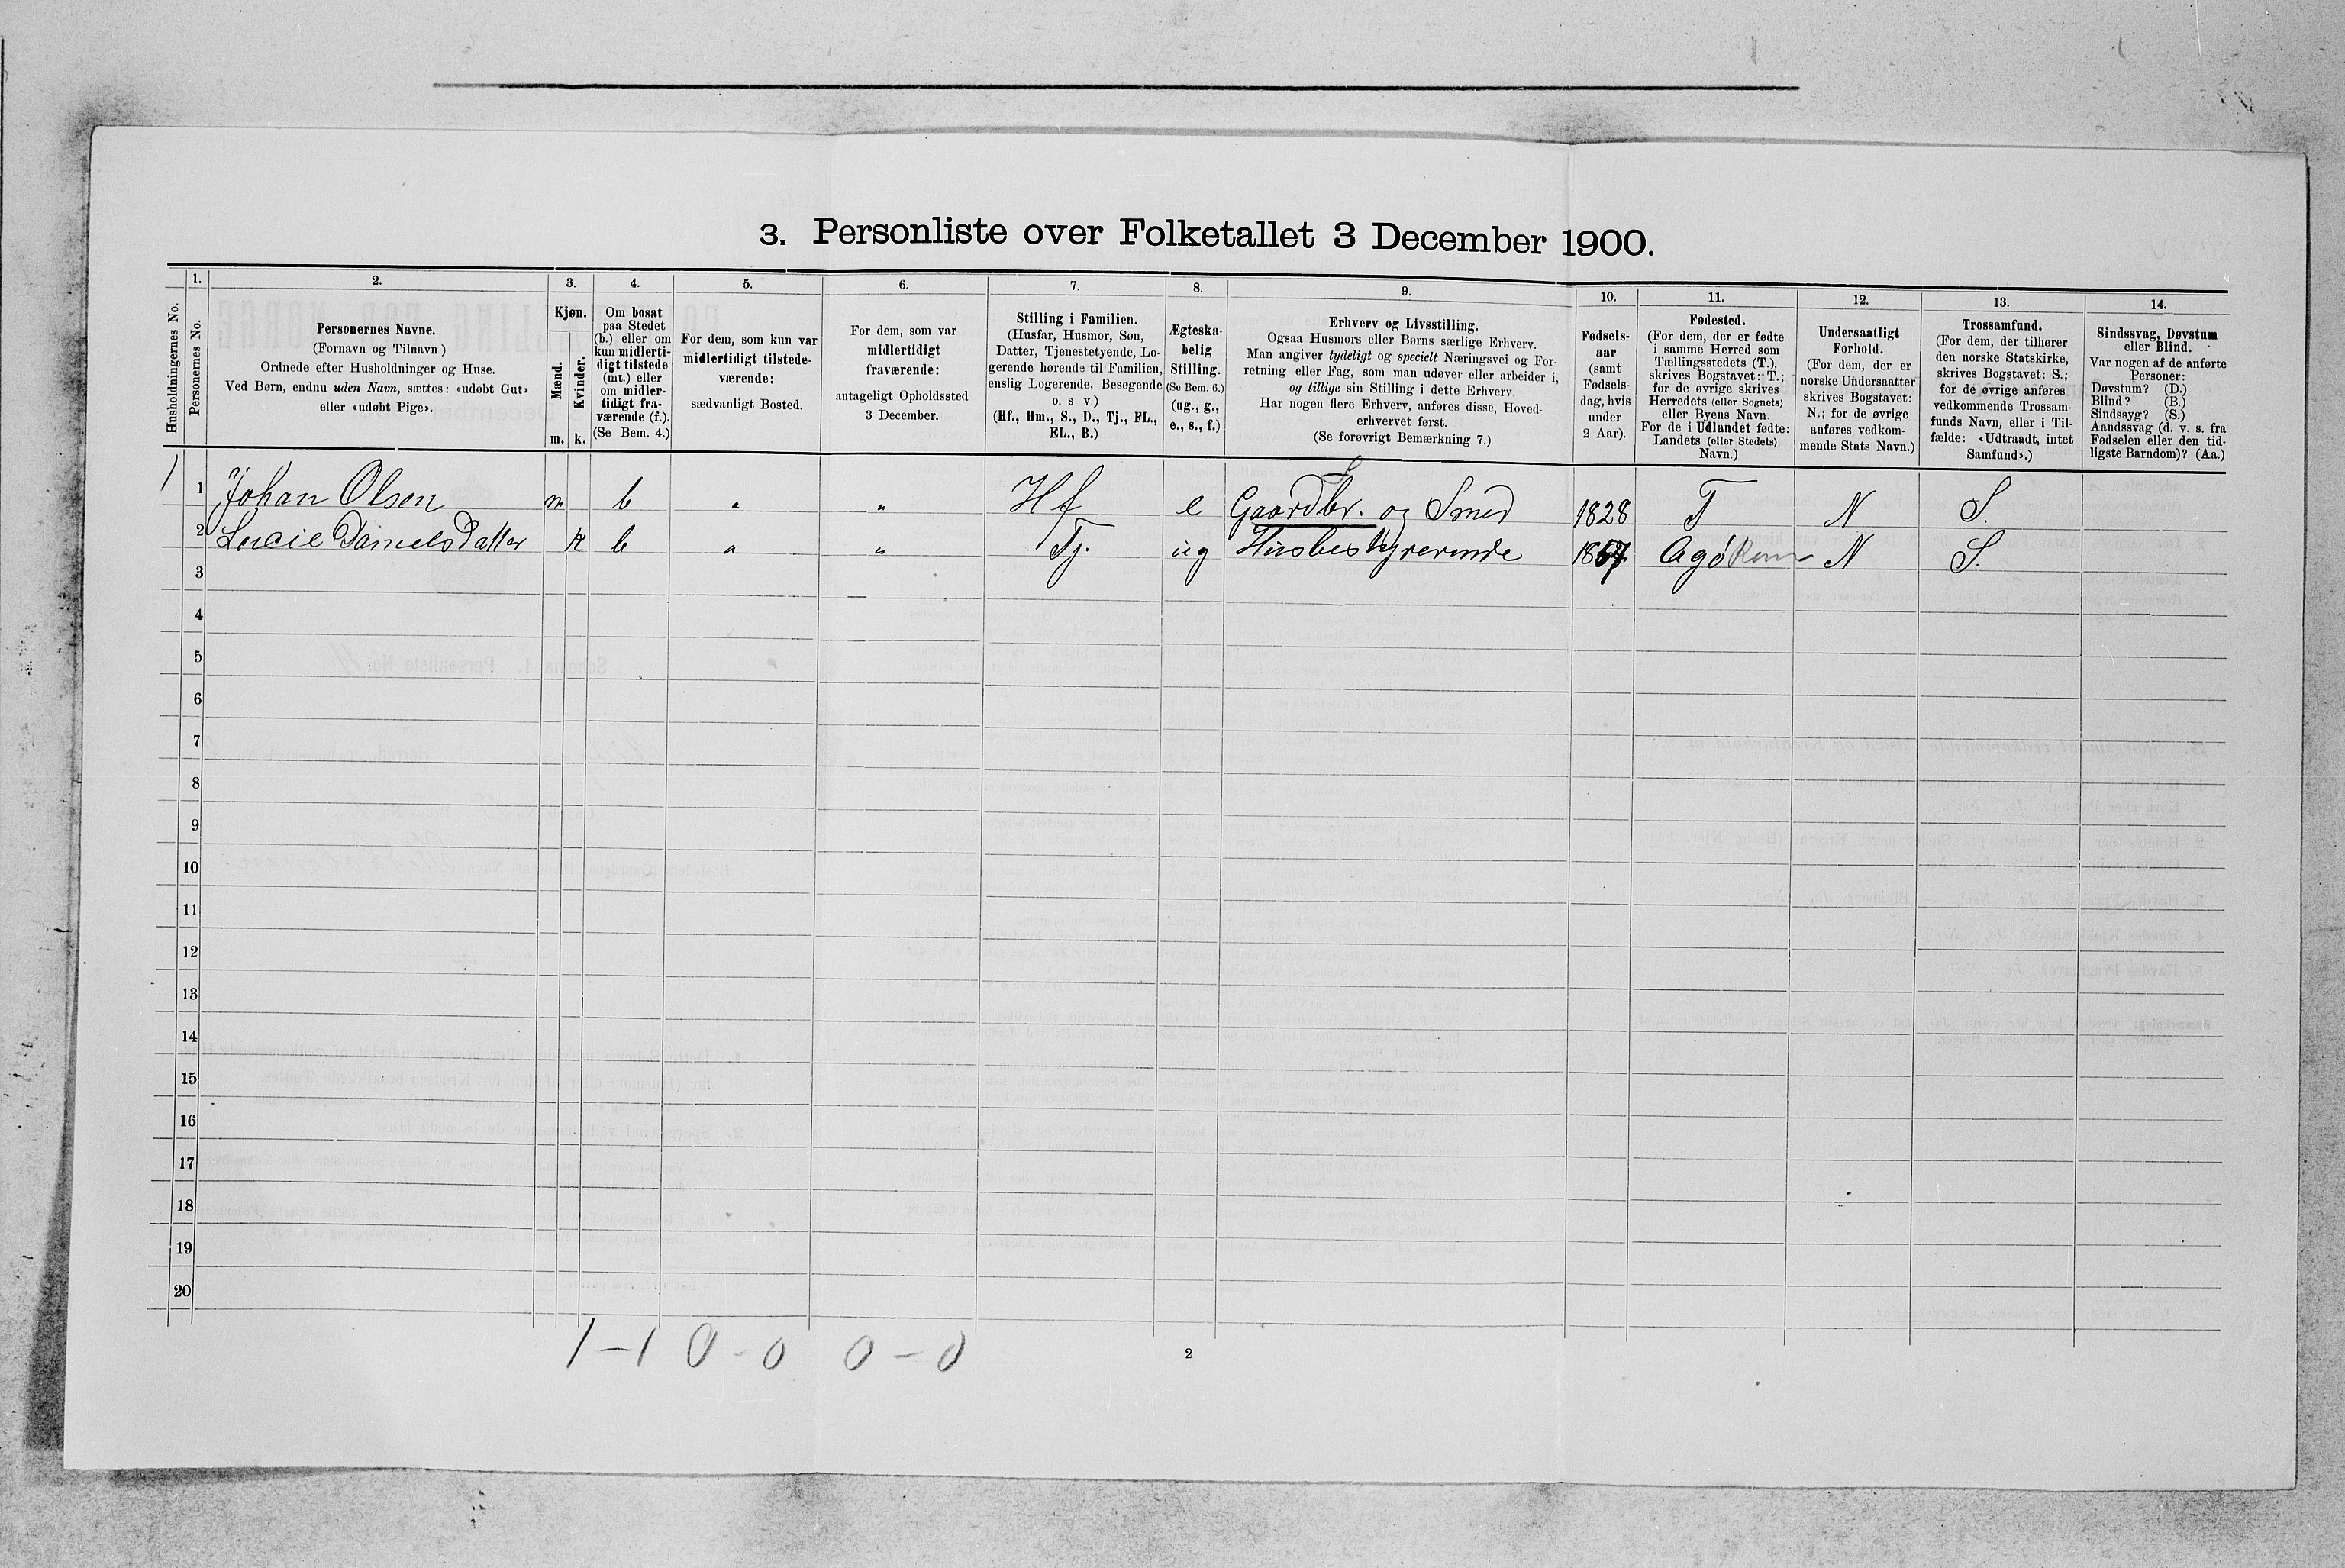 3. Personliste over Folketallet 3 December 1900.
Husholdningernes No.
1.
Personernes No.
2.
Personernes Navne.
(Fornavn og Tilnavn)
Ordnede efter Husholdninger og Huse.
Ved Børn, endnu uden Navn, sættes: «udøbt Gut»
eller «udøbt Pige».
3.
Kjøn.
Mænd.
Kvinder.
m. k.
4.
Om bosat
paa Stedet
(b.) eller om
kun midlerti-
digt tilstede
(mt.) eller
om midler-
tidigt fra-
værende (f.).
(Se Bem. 4.)
5.
For dem, som kun var
midlertidigt tilstede-
værende:
sædvanligt Bosted.
6.
For dem, som var
midlertidigt
fraværende:
antageligt Opholdssted
3 December.
7.
Stilling i Familien.
(Husfar, Husmor, Søn,
Datter, Tjenestetyende, Lo-
gerende hørende til Familien,
enslig Logerende, Besøgende
o. s v)
(Hf., Hm., S., D., Tj., FL.,
EL., B.)
8.
Ægteska-
belig
Stilling.
(Se Bem. 6.)
(ug., g.,
e., s., f.)
9.
Erhverv og Livsstilling.
Ogsaa Husmors eller Børns særlige Erhverv.
Man angiver tydeligt og specielt Næringsvei og For-
retning eller Fag, som man udøver eller arbeider i,
og tillige sin Stilling i dette Erhverv.
Har nogen flere Erhverv, anføres disse, Hoved-
erhvervet først.
(Se forøvrigt Bemærkning 7.)
10.
Fødsels-
aar
(samt
Fødsels-
dag, hvis
under
2 Aar).
11.
Fødested.
(For dem, der er fødte
i samme Herred som
Tællingsstedets (T.),
skrives Bogstavet: T.;
for de øvrige skrives
Herredets (eller Sognets)
eller Byens Navn.
For de i Udlandet fødte:
Landets (eller Stedets)
Navn.)
12.
Undersaatligt
Forhold.
(For dem, der er
norske Undersaatter
skrives Bogstavet:
N.; for de øvrige
anføres vedkom-
mende Stats Navn.)
13.
Trossamfund.
(For dem, der tilhører
den norske Statskirke,
skrives Bogstavet: S.;
for de øvrige anføres
vedkommende Trossam-
funds Navn, eller i Til-
fælde: «Udtraadt, intet
Samfund».)
14.
Sindssvag, Døvstum
eller Blind.
Var nogen af de anførte
Personer:
Døvstum? (D.)
Blind? (B.)
Sindssyg? (S.)
Aandssvag (d. v. s. fra
Fødselen eller den tid-
ligste Barndom)? (Aa.)
1 1 Johan Olsen m b " " Hf e Gaardbr. og Smed 1828 T N S.
2 Lucie Danielsdatter k b " " Tj. ug Husbestyrerinde N S.
3
4
5
6
7
8
9
10
11
12
13
14
15
16
17
18
19
20
1-1 0-0 0-0
2